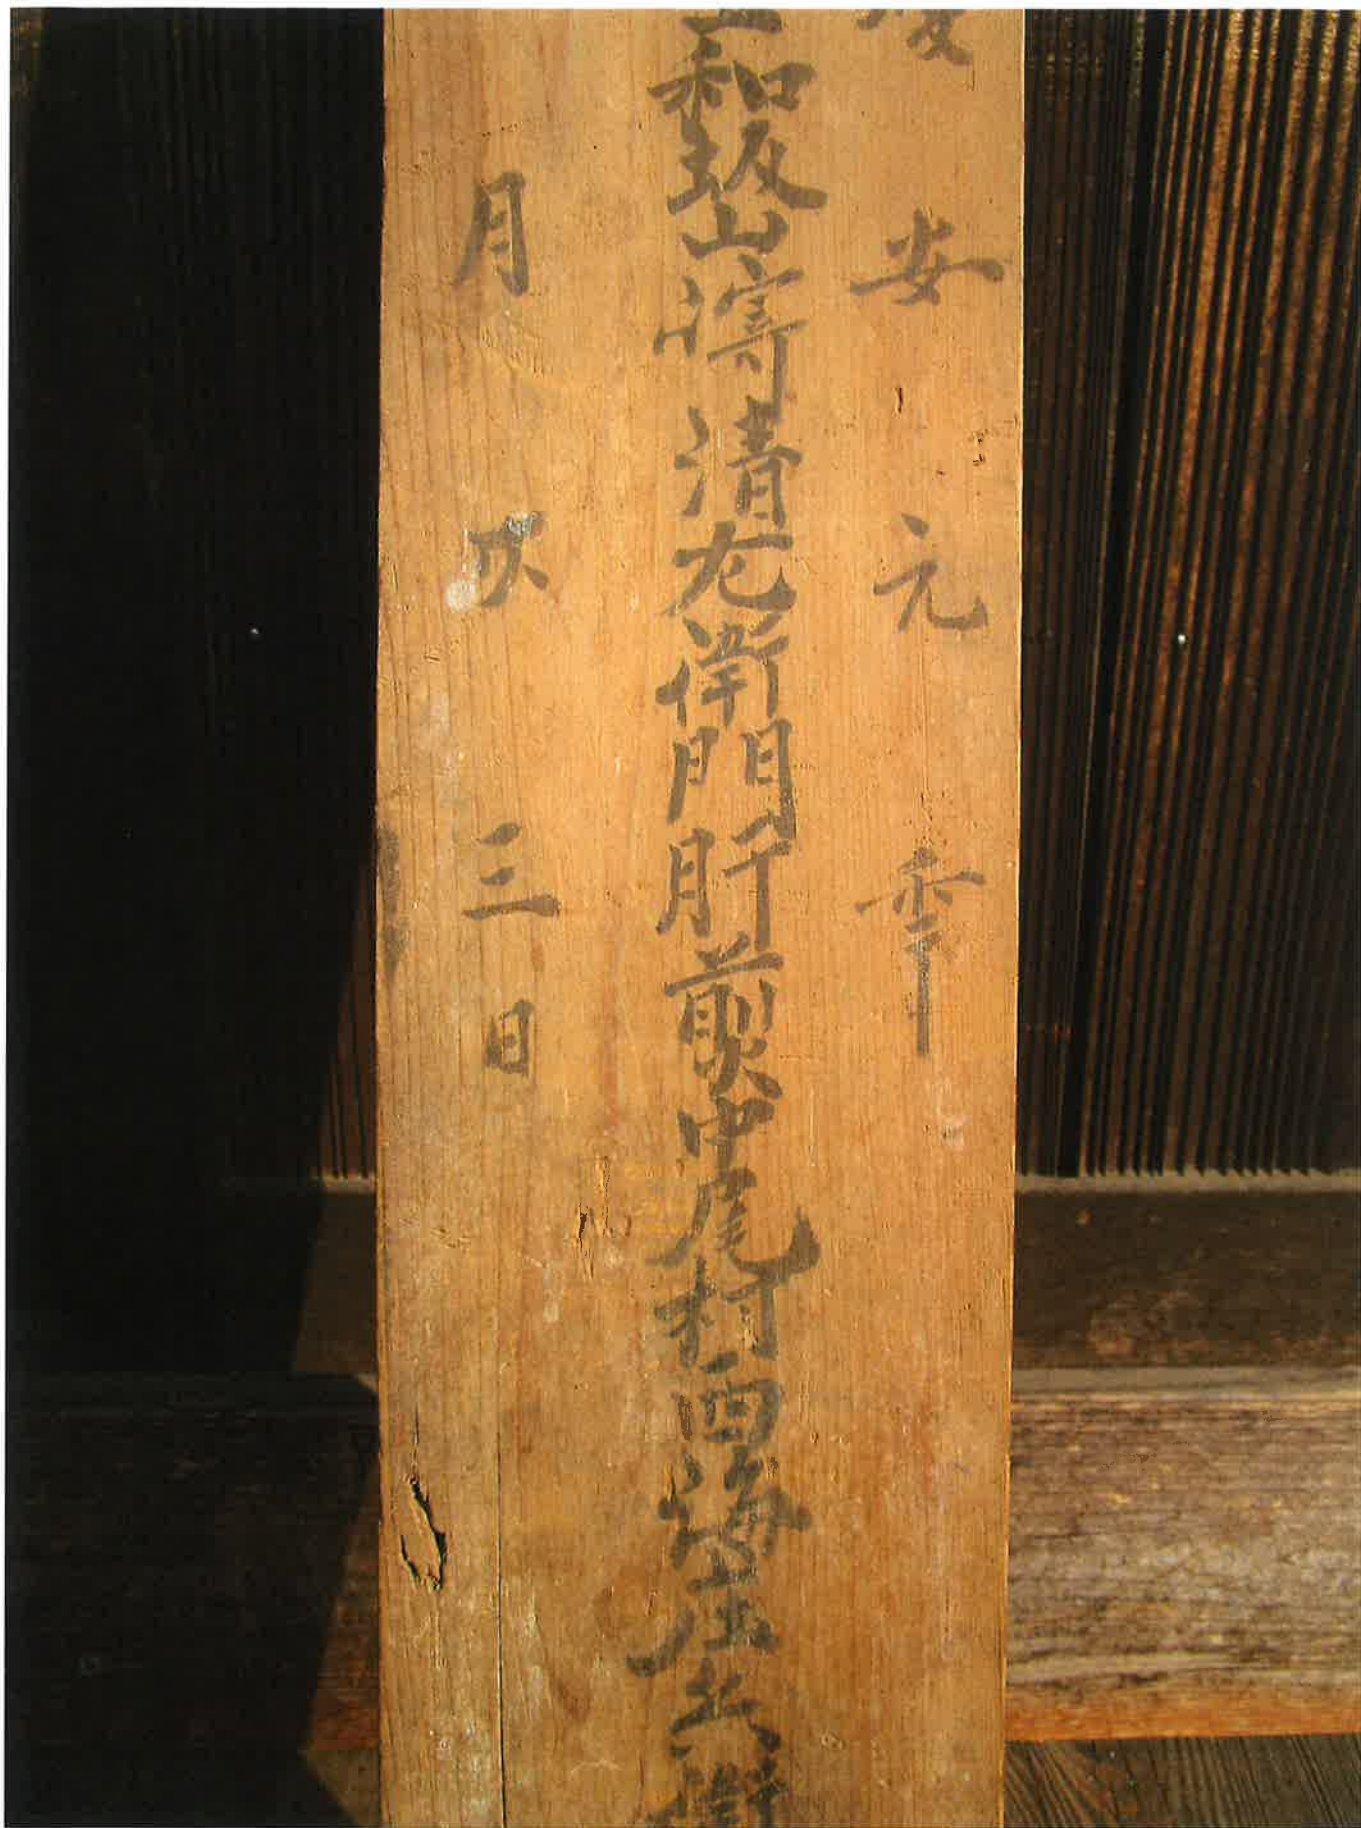 慶安元年
和坂山澪清左衛門肝煎中尾村西海庄兵衛
月大三日